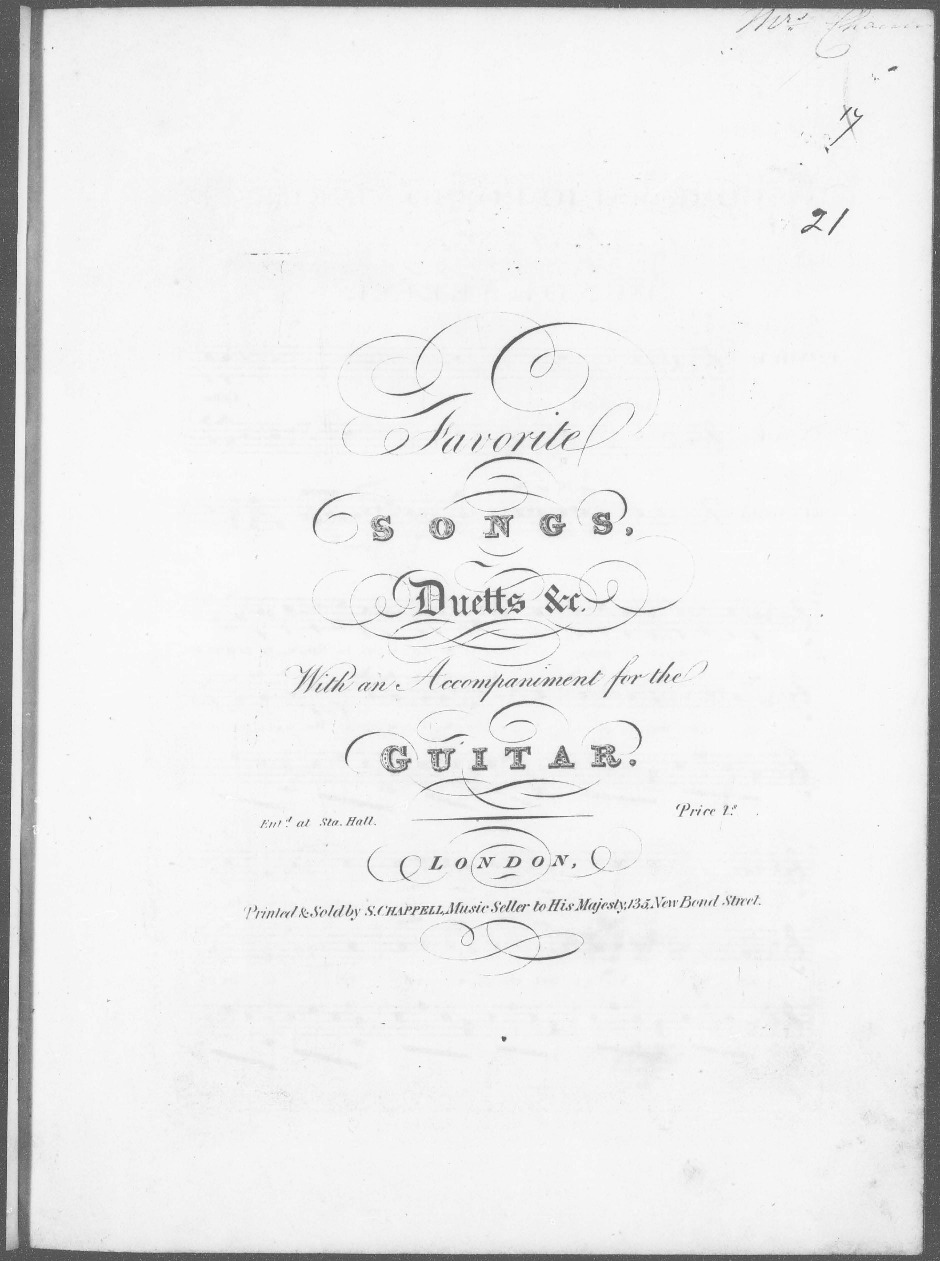 Mrs.
17
21
Favorite
SONGS,
Duetts &c.
With an Accompaniment for the
GUITAR.
Entd. at Sta. Hall.
Price 1s
LONDON,
Printed & Sold by S. CHAPPELL, Music Seller to His Majesty, 135, New Bond Street.